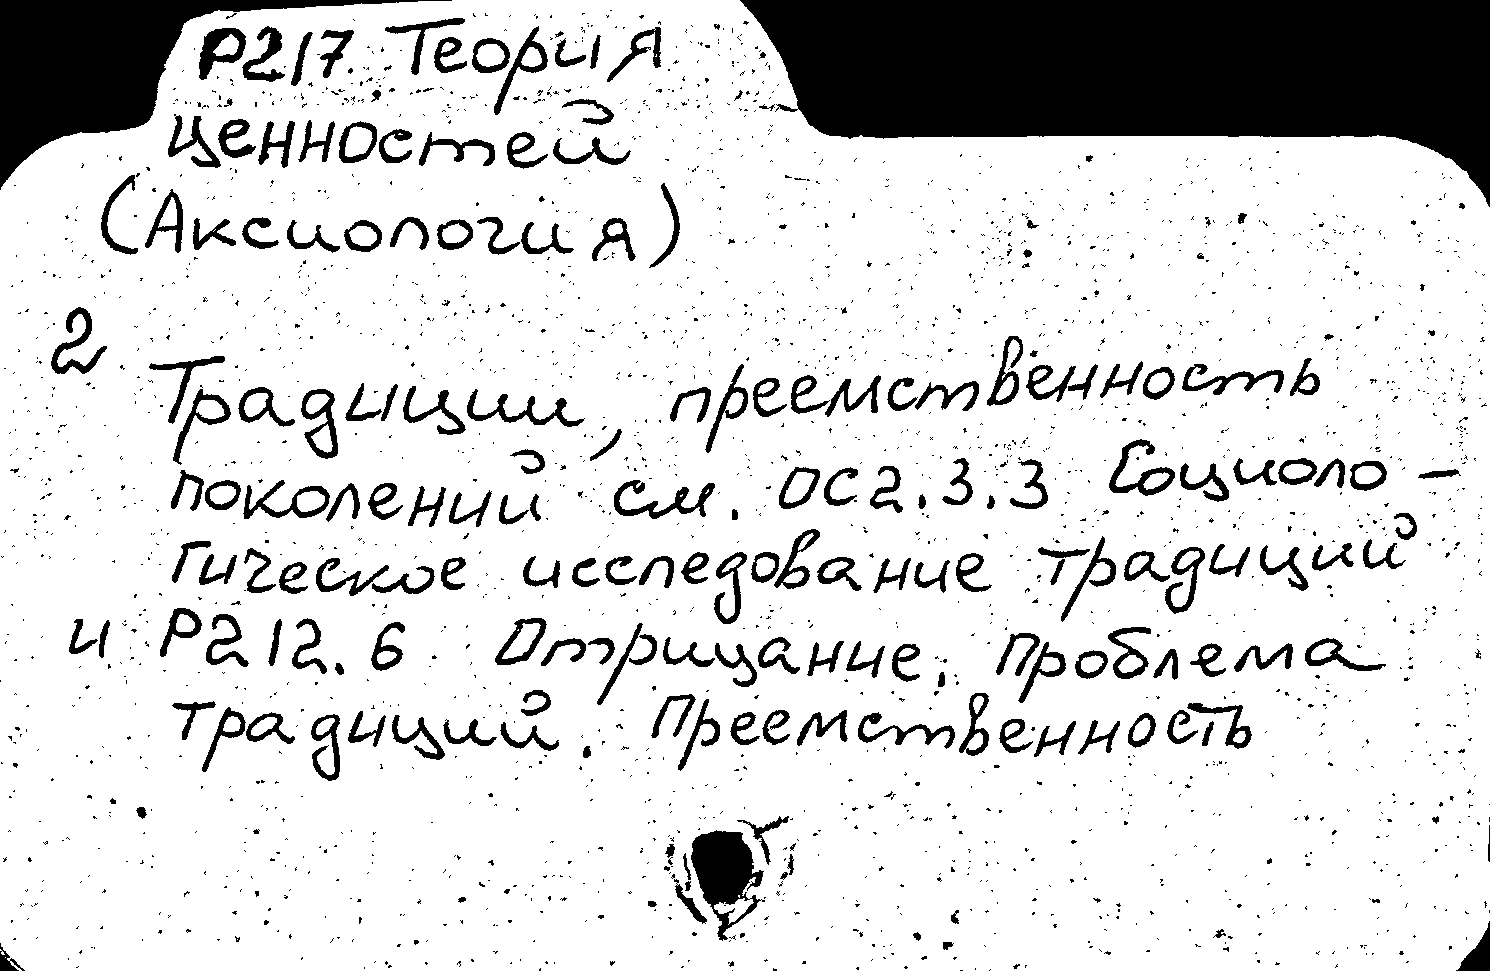 Р217 Теория
ценностей
(Аксиология)
2
Традиции, преемственность
поколений см. ОС2.3.3 Социоло-
гическое исследование традиций
и Р212.6 Отрицание. Проблема
традиций. Преемственность